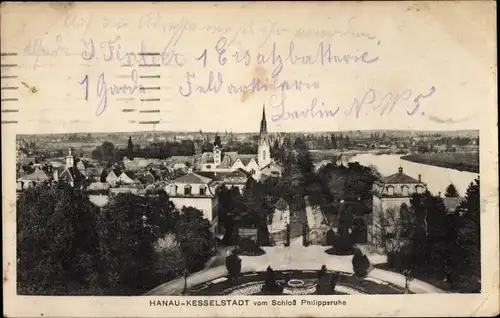 Auf die Adresse
J. Fischer 1 Ersatzbatterie
1 Garde Feldartillerie
Berlin N.W 5.
HANAU-KESSELSTADT vom Schloß Philippsruhe